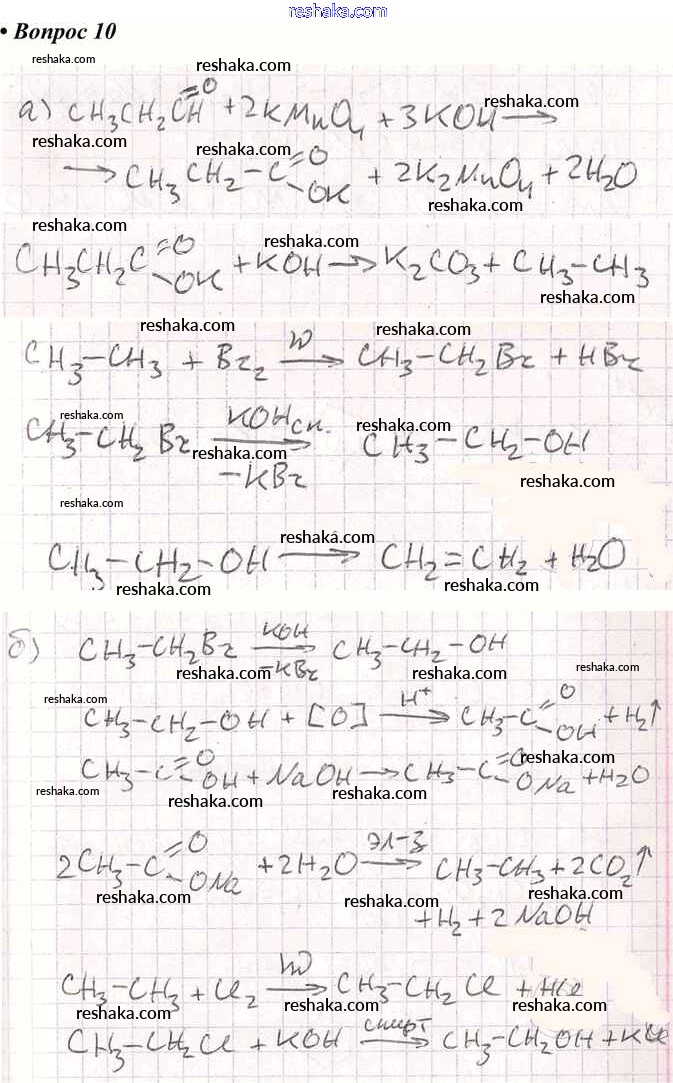 reshaka.com
• Вопрос 10
reshaka.com reshaka.com
а) CH3CH2CH=O + 2KMnO4 + 3KOH → reshaka.com
reshaka.com reshaka.com
→ CH3CH2-C=O-OK + 2K2MnO4 + 2H2O
reshaka.com
reshaka.com reshaka.com
CH3CH2C=O-OK + KOH → K2CO3 + CH3-CH3
reshaka.com reshaka.com
reshaka.com reshaka.com
CH3-CH3 + Br2 hν→ CH3-CH2Br + HBr
reshaka.com reshaka.com
CH3-CH2Br KOH сп. -KBr→ CH3-CH2-OH
reshaka.com
reshaka.com reshaka.com
reshaka.com
CH3-CH2-OH → CH2=CH2 + H2O
reshaka.com reshaka.com
б) CH3-CH2Br KOH -KBr→ CH3-CH2-OH
reshaka.com reshaka.com reshaka.com
reshaka.com
CH3-CH2-OH + [O] H+→ CH3-C=O-OH + H2↑
reshaka.com reshaka.com
CH3-C=O-OH + NaOH → CH3-C=O-ONa + H2O
reshaka.com reshaka.com reshaka.com
2CH3-C=O-ONa + 2H2O эл-з→ CH3-CH3 + 2CO2↑
reshaka.com reshaka.com reshaka.com
+ H2 + 2NaOH
CH3-CH3 + Cl2 hν→ CH3-CH2Cl + HCl
reshaka.com reshaka.com reshaka.com
CH3-CH2Cl + KOH спирт→ CH3-CH2OH + KCl
reshaka.com reshaka.com reshaka.com